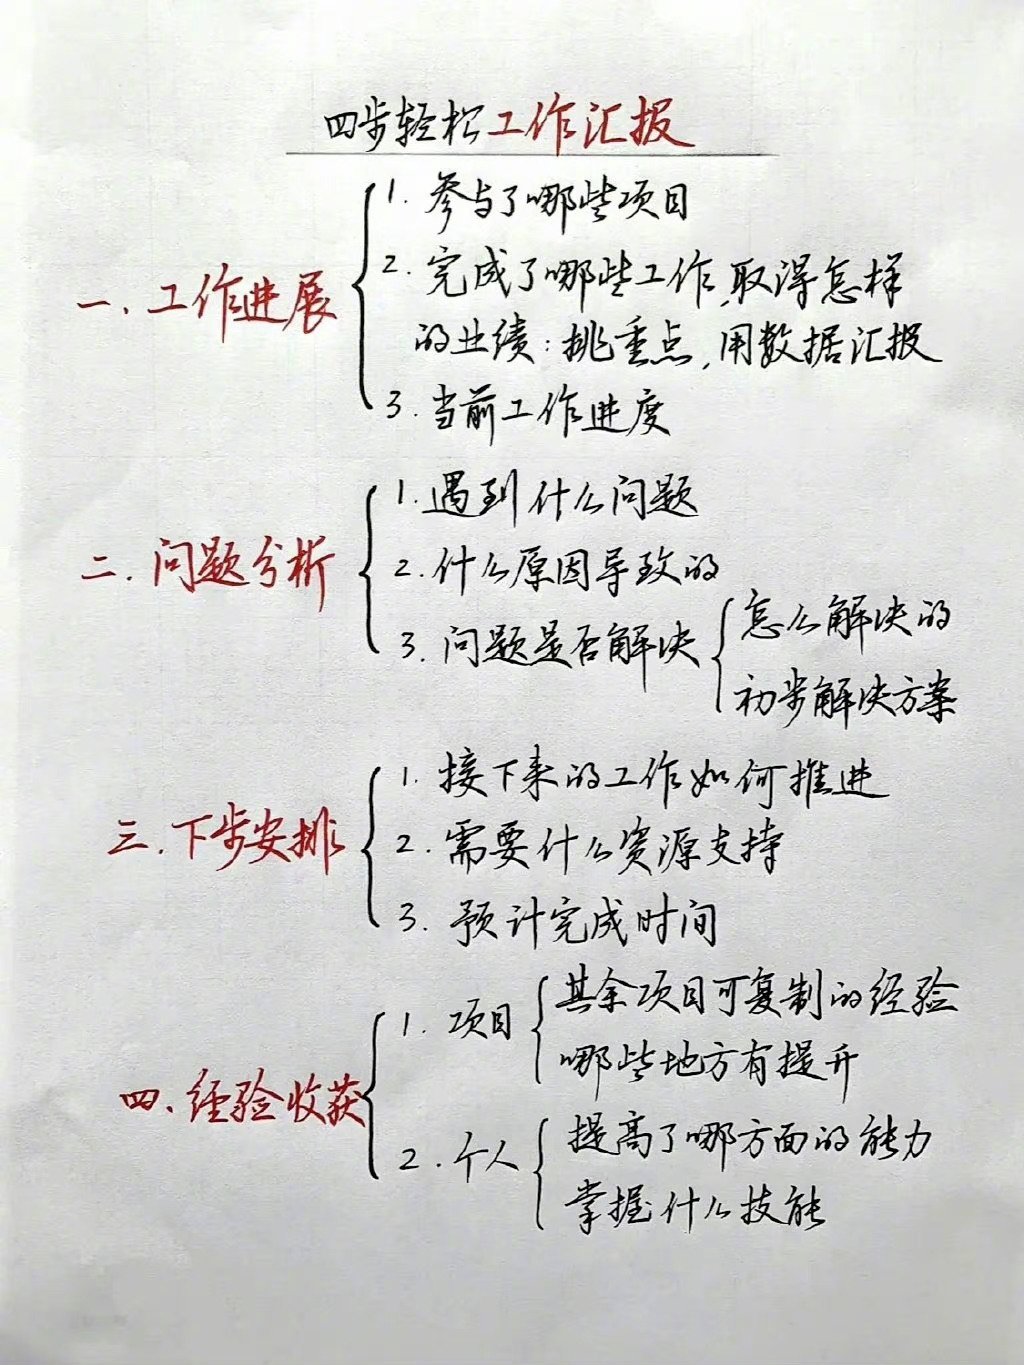 四步轻松工作汇报
一.工作进展
1.参与了哪些项目
2.完成了哪些工作,取得怎样
的业绩:挑重点,用数据汇报
3.当前工作进度
二.问题分析
1.遇到什么问题
2.什么原因导致的
3.问题是否解决
怎么解决的
初步解决方案
三.下步安排
1.接下来的工作如何推进
2.需要什么资源支持
3.预计完成时间
四.经验收获
1.项目
其余项目可复制的经验
哪些地方有提升
2.个人
提高了哪方面的能力
掌握什么技能